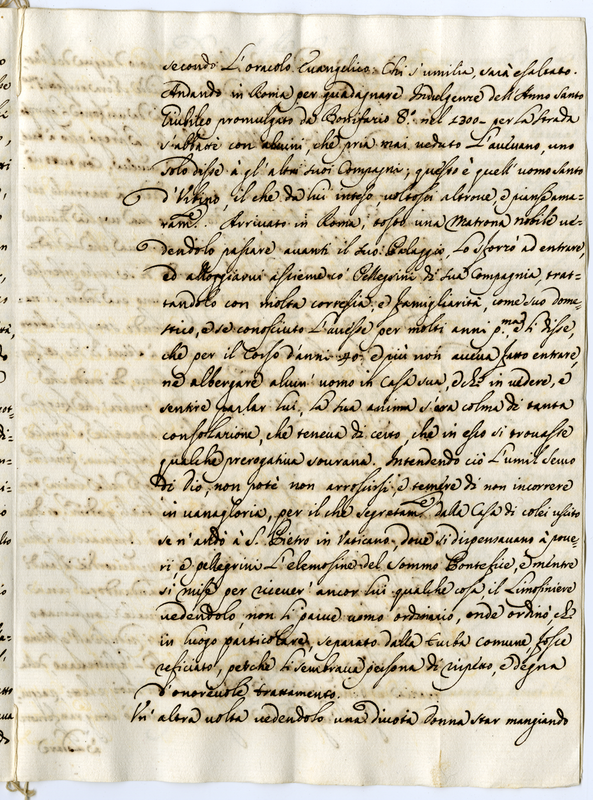 secondo L'oracolo Euangelico. Chi s'umilia, sarà esaltato.
Andando in Roma per guadagnare Indulgenze dell'Anno Santo
Giubileo promulgato da Bonifazio 8.° nel 1300 per la strada
s'abbatté con alcuni, che pria mai veduto L'aueuano, uno
solo disse à gl'altri suoi Compagni; questo è quell'uomo santo
d'Urbino, il che da lui inteso voltossi altroue, e pianse ama=
ram.te. Arriuato in Roma, tosto una Matrona nobile ue=
dendolo passare auanti il suo Palaggio, Lo sforzò ad entrare,
ed alloggiarui assieme có Pellegrini di sua Compagnia, trat=
tandolo con molta cortesia, e famigliarità, come suo dome=
stico, e se conosciuto L'auesse per molti anni p.ma e li disse,
che per il Corso d'anni 40. e più non aueua fatto entrare,
nè albergare alcun'uomo in Casa sua, e che in vedere, e
sentire parlar lui, la sua anima s'era colma di tanta
consolazione, che teneua di certo, che in esso si trouasse
qualche prerogatiua sourana. Intendendo ciò L'umil Seruo
di Dio, non potè non arrossirsi e temere di non incorrere
in uanagloria, per il che segretam.te dalla Casa di colei uscito
se n'andò à S. Pietro in Vaticano, doue si dispensauano à poue=
ri e pellegrini L'elemosine del Sommo Pontefice, e mentre
si mise per riceuer'ancor lui qualche cosa, il Limosiniere
uedendolo, non li parue uomo ordinario, onde ordinò che
in luogo particolare, separato dalla turba comune, fosse
reficiato, perche li sembraua persona di rispetto, e degna
d'onoreuole trattamento.
Un'altra uolta uedendolo una diuota Donna star mangiando